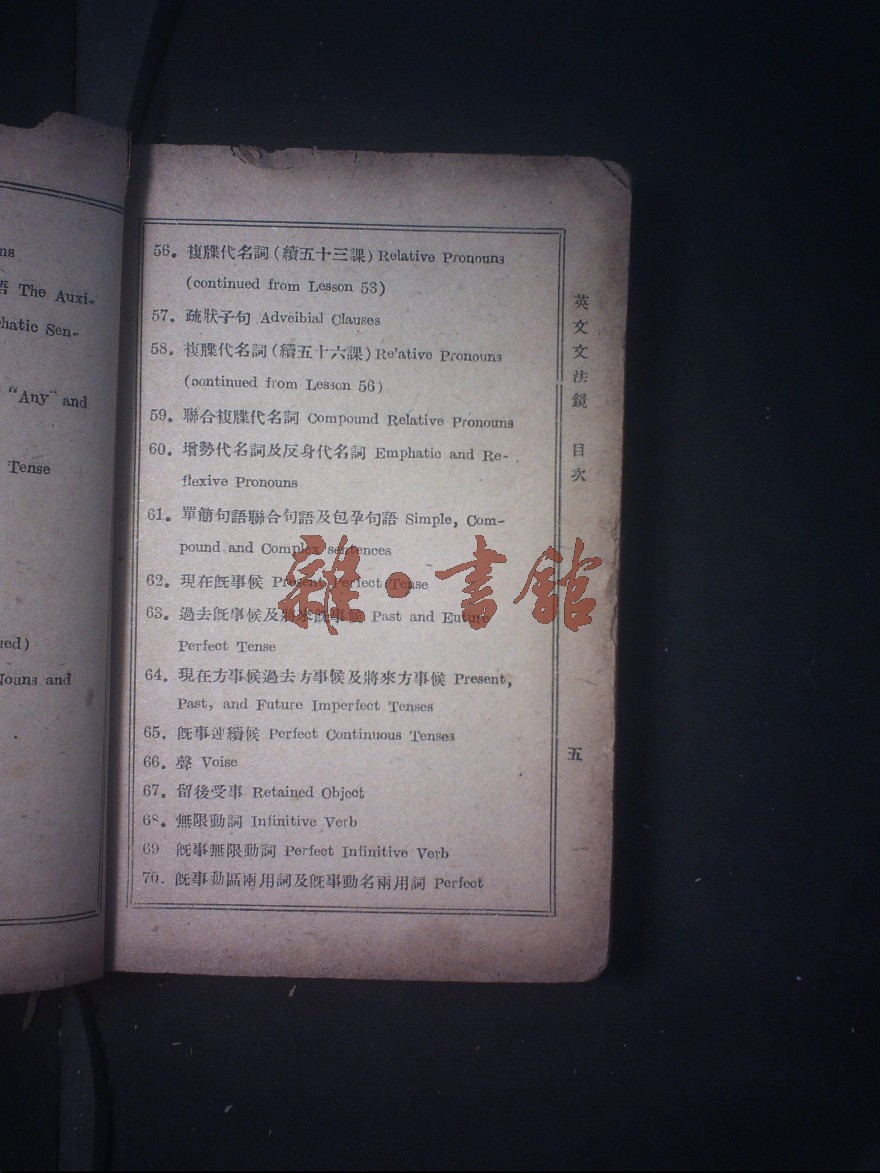 ns
語 The Auxi-
hatic Sen-
"Any" and
Tense
ued)
Nouns and
56. 複牒代名詞(續五十三課) Relative Pronouns
(continued from Lesson 53)
57. 疏狀子句 Adveibial Clauses
58. 複牒代名詞(續五十六課) Re'ative Pronouns
(oontinued from Lesson 56)
59. 聯合複牒代名詞 Compound Relative Pronouns
60. 增勢代名詞及反身代名詞 Emphatic and Re-
flexive Pronouns
61. 單簡句語聯合句語及包孕句語 Simple, Com-
pound and Complex sentences
62. 現在旣事候 Present Perfect Tense
63. 過去旣事候及將來旣事候 Past and Future
Perfect Tense
64. 現在方事候過去方事候及將來方事候 Present,
Past, and Future Imperfect Tenses
65. 旣事連續候 Perfect Continuous Tenses
66. 聲 Voise
67. 留後受事 Retained Object
68. 無限動詞 Infinitive Verb
69 旣事無限動詞 Perfect Infinitive Verb
70. 旣事動區兩用詞及旣事動名兩用詞 Perfect
英文文法鏡 目次
五
雜·書館